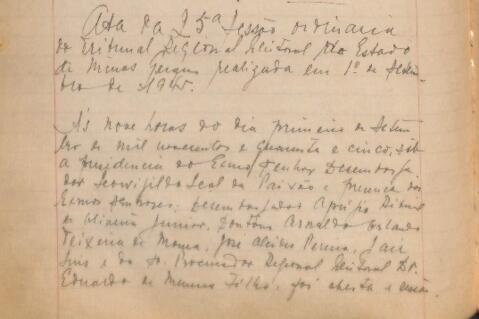 Ata da 25ª Sessão ordinaria
do Tribunal Regional Eleitoral do Estado
de Minas Gerais realizada em 1º de Setem-
bro de 1945.
Ás nove horas do dia primeiro de Setem-
bro de mil novecentos e quarenta e cinco, sob
a presidencia do Exmo Senhor Desembarga-
dor Leovigildo Leal da Paixão e presença dos
Exmos Senhores: Desembargador Aprigio
de Oliveira Junior, Doutores Arnaldo
Teixeira de Moura, José Alcides Pereira, Jair
Lins e do Sr. Procurador Regional Eleitoral Dr.
Eduardo de Menezes Filho, foi aberta a sessão.